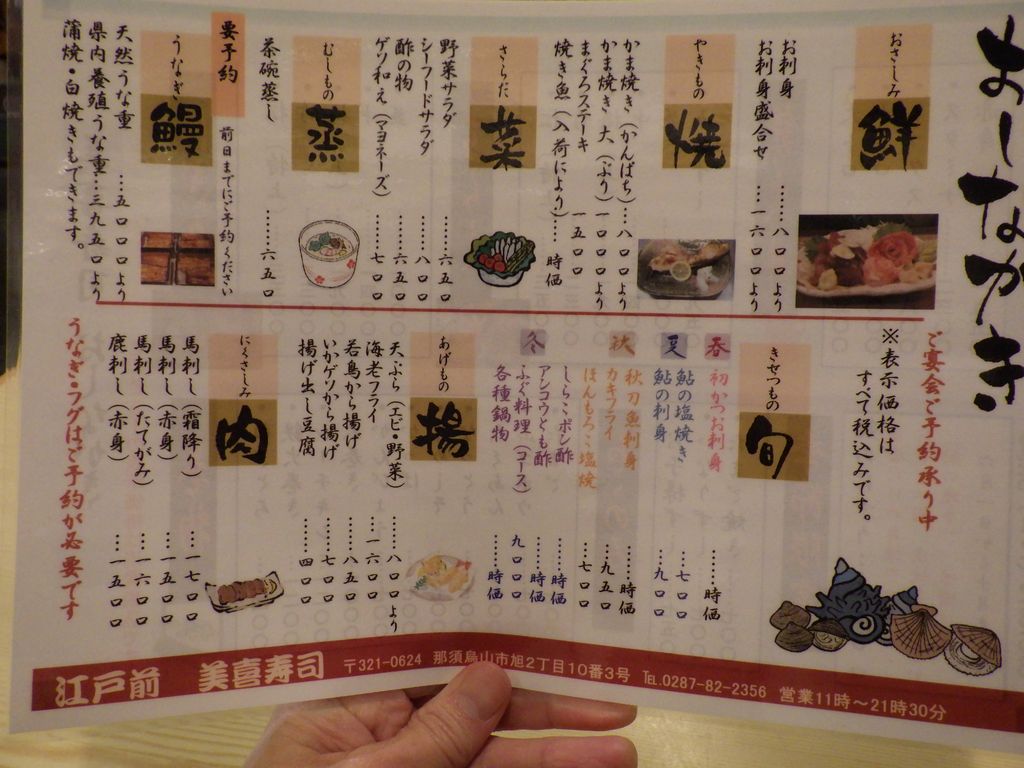 おしながき
ご宴会ご予約承り中
※表示価格は
すべて税込みです。
おさしみ
鮮
お刺身 ……八〇〇より
お刺身盛合せ …一六〇〇より
やきもの
焼
かま焼き（かんぱち）…八〇〇より
かま焼き 大（ぶり）一〇〇〇より
まぐろステーキ 一五〇〇
焼き魚（入荷により）…時価
さらだ
菜
野菜サラダ ……六五〇
シーフードサラダ ……八〇〇
酢の物 ……六五〇
ゲソ和え（マヨネーズ）……七〇〇
むしもの
蒸
茶碗蒸し ……六五〇
要予約
前日までにご予約ください
うなぎ
鰻
天然うな重 …五〇〇〇より
県内養殖うな重…三九五〇より
蒲焼・白焼きもできます。
きせつもの
旬
春
初かつお刺身 ……時価
夏
鮎の塩焼き …七〇〇
鮎の刺身 …九〇〇
秋
秋刀魚刺身 ……時価
カキフライ …九五〇
ほんもろこ塩焼 …七〇〇
冬
しらこポン酢 ……時価
アンコウとも酢 ……時価
ふぐ料理（コース）九〇〇〇
各種鍋物 ……時価
あげもの
揚
天ぷら（エビ・野菜）…八〇〇より
海老フライ …一六〇〇
若鳥から揚げ …八五〇
いかゲソから揚げ …七〇〇
揚げ出し豆腐 …四〇〇
にくさしみ
肉
馬刺し（霜降り）…一七〇〇
馬刺し（赤身）…一五〇〇
馬刺し（たてがみ）…一六〇〇
鹿刺し（赤身）…一五〇〇
うなぎ・フグはご予約が必要です
江戸前 美喜寿司 〒321-0624 那須烏山市旭2丁目10番3号 TEL.0287-82-2356 営業11時～21時30分